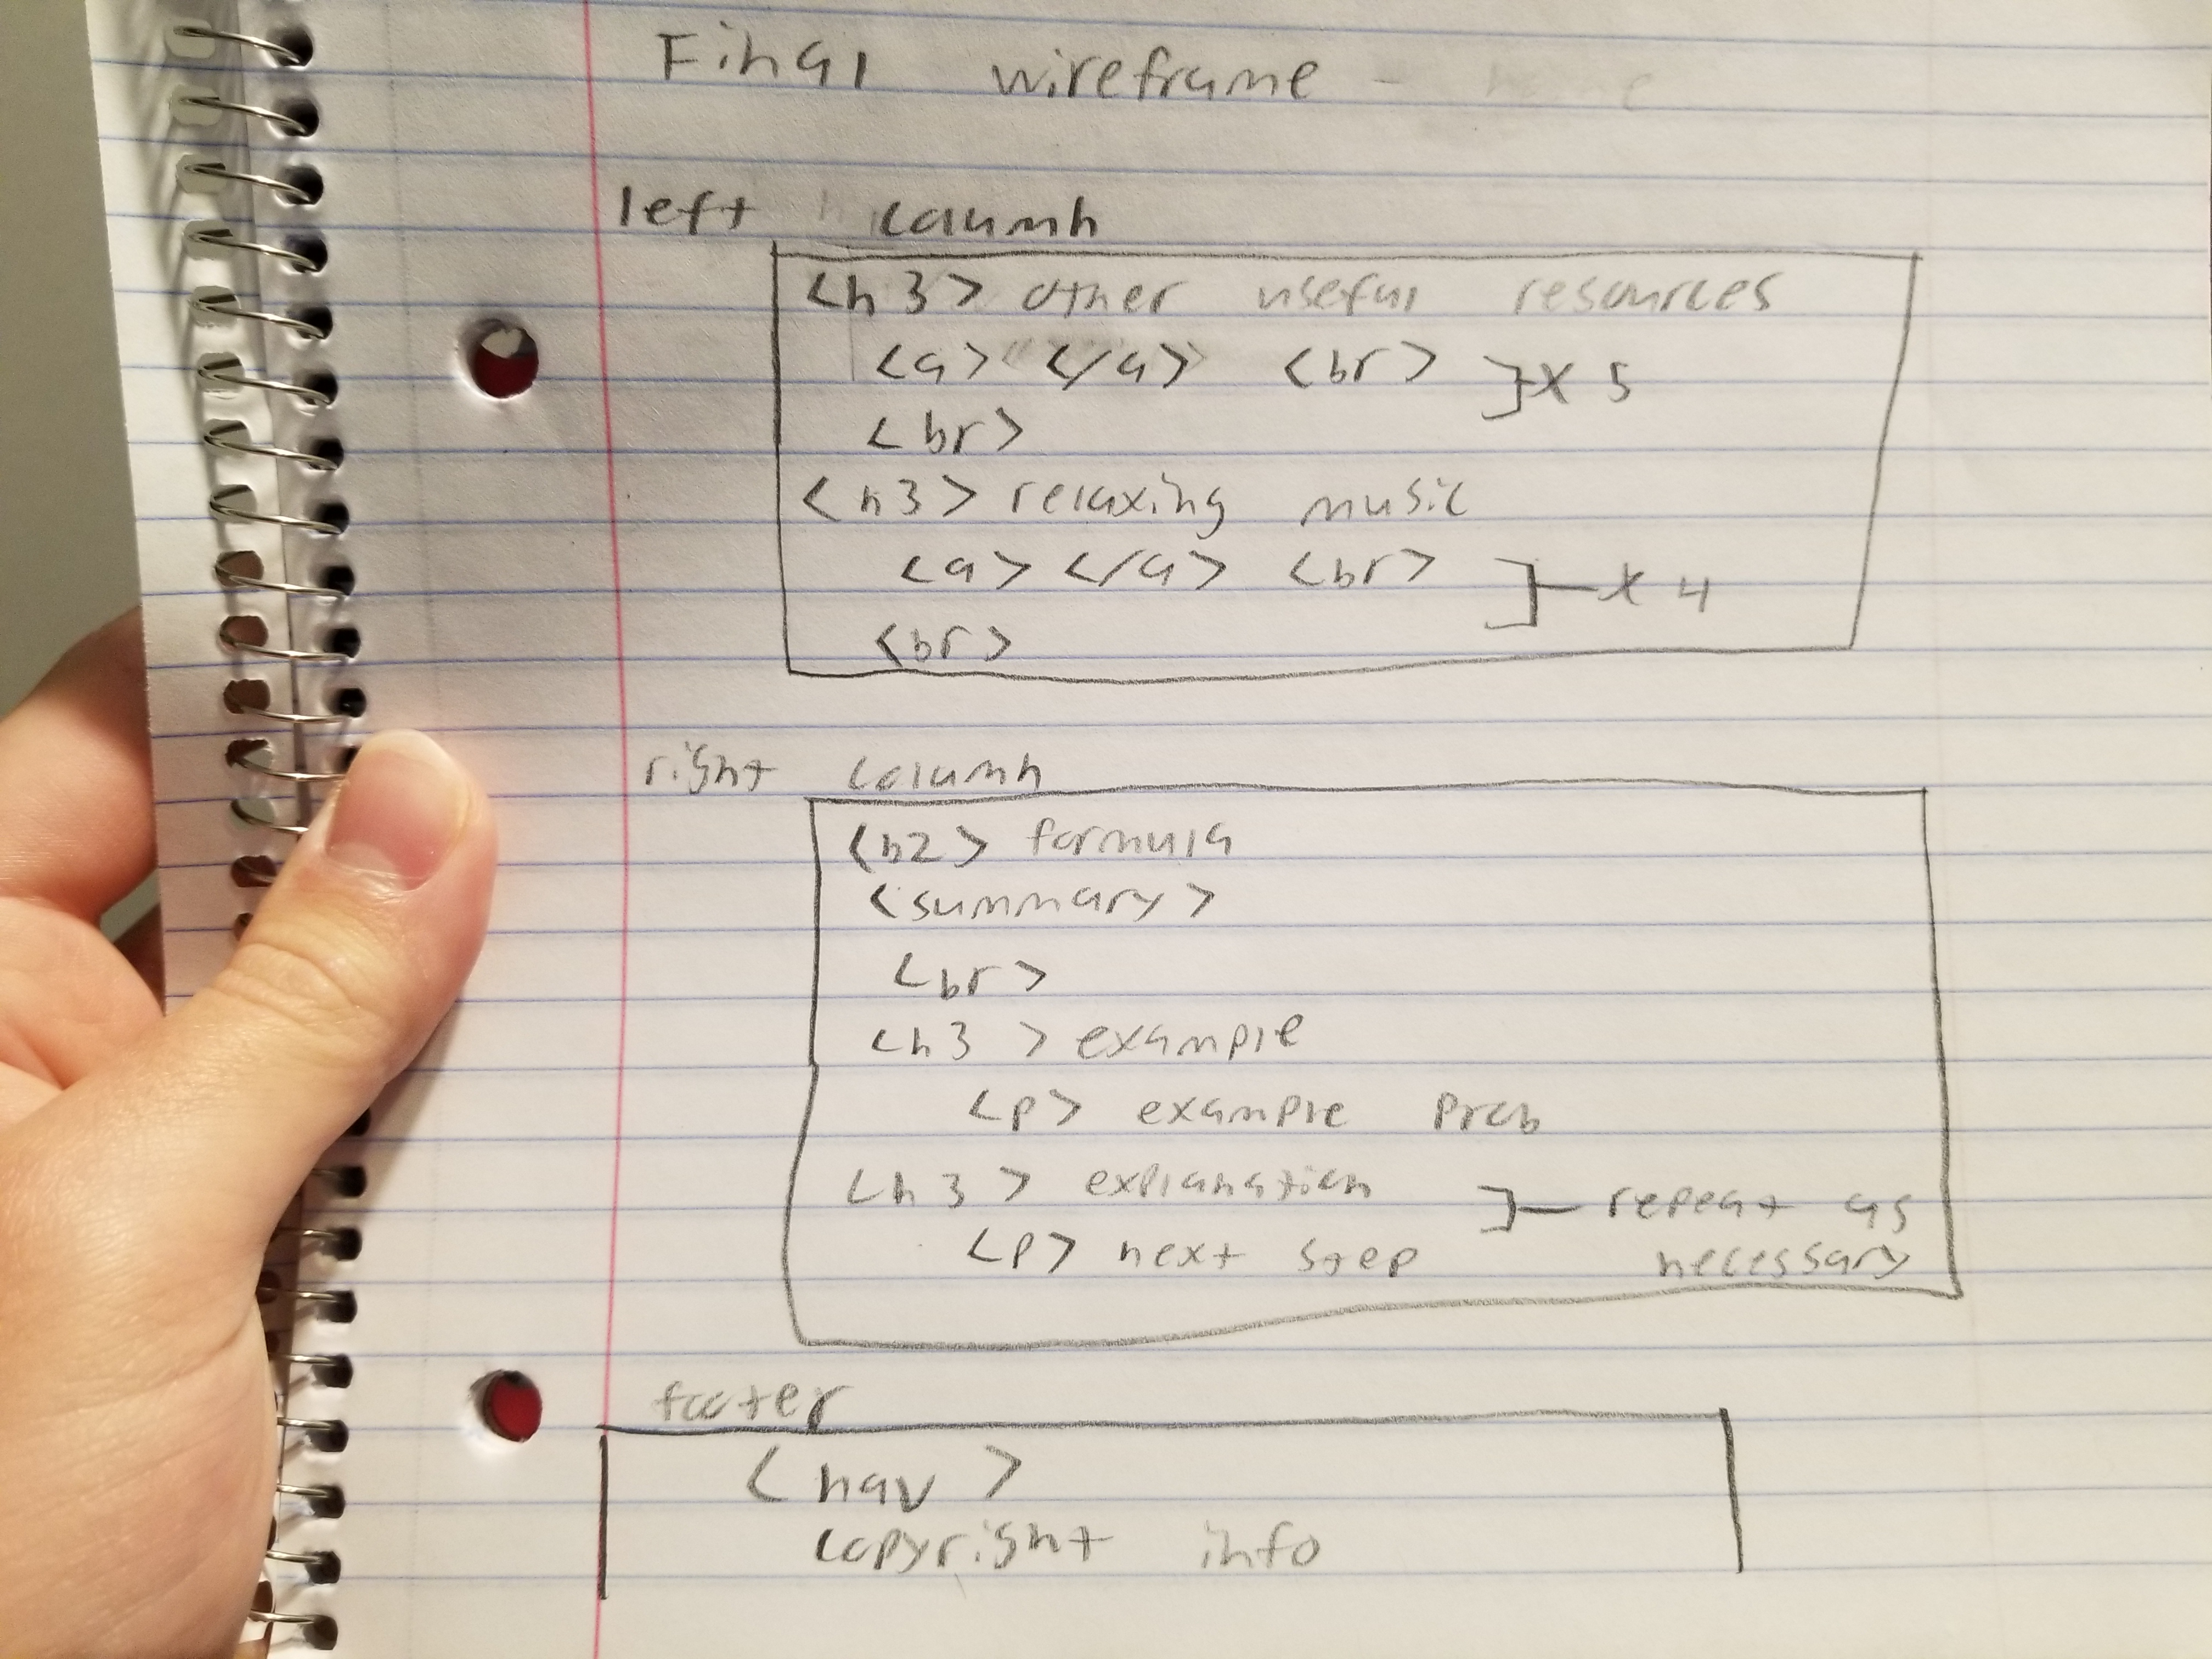 Final wireframe -
left column
<h3> other useful resources
<a> </a> <br> ] x 5
<br>
<h3> relaxing music
<a> </a> <br> ] x 4
<br>
right column
<h2> formula
<summary>
<br>
<h3> example
<p> example prob
<h3> explanation ] repeat as
<p> next step necessary
footer
<nav>
copyright info